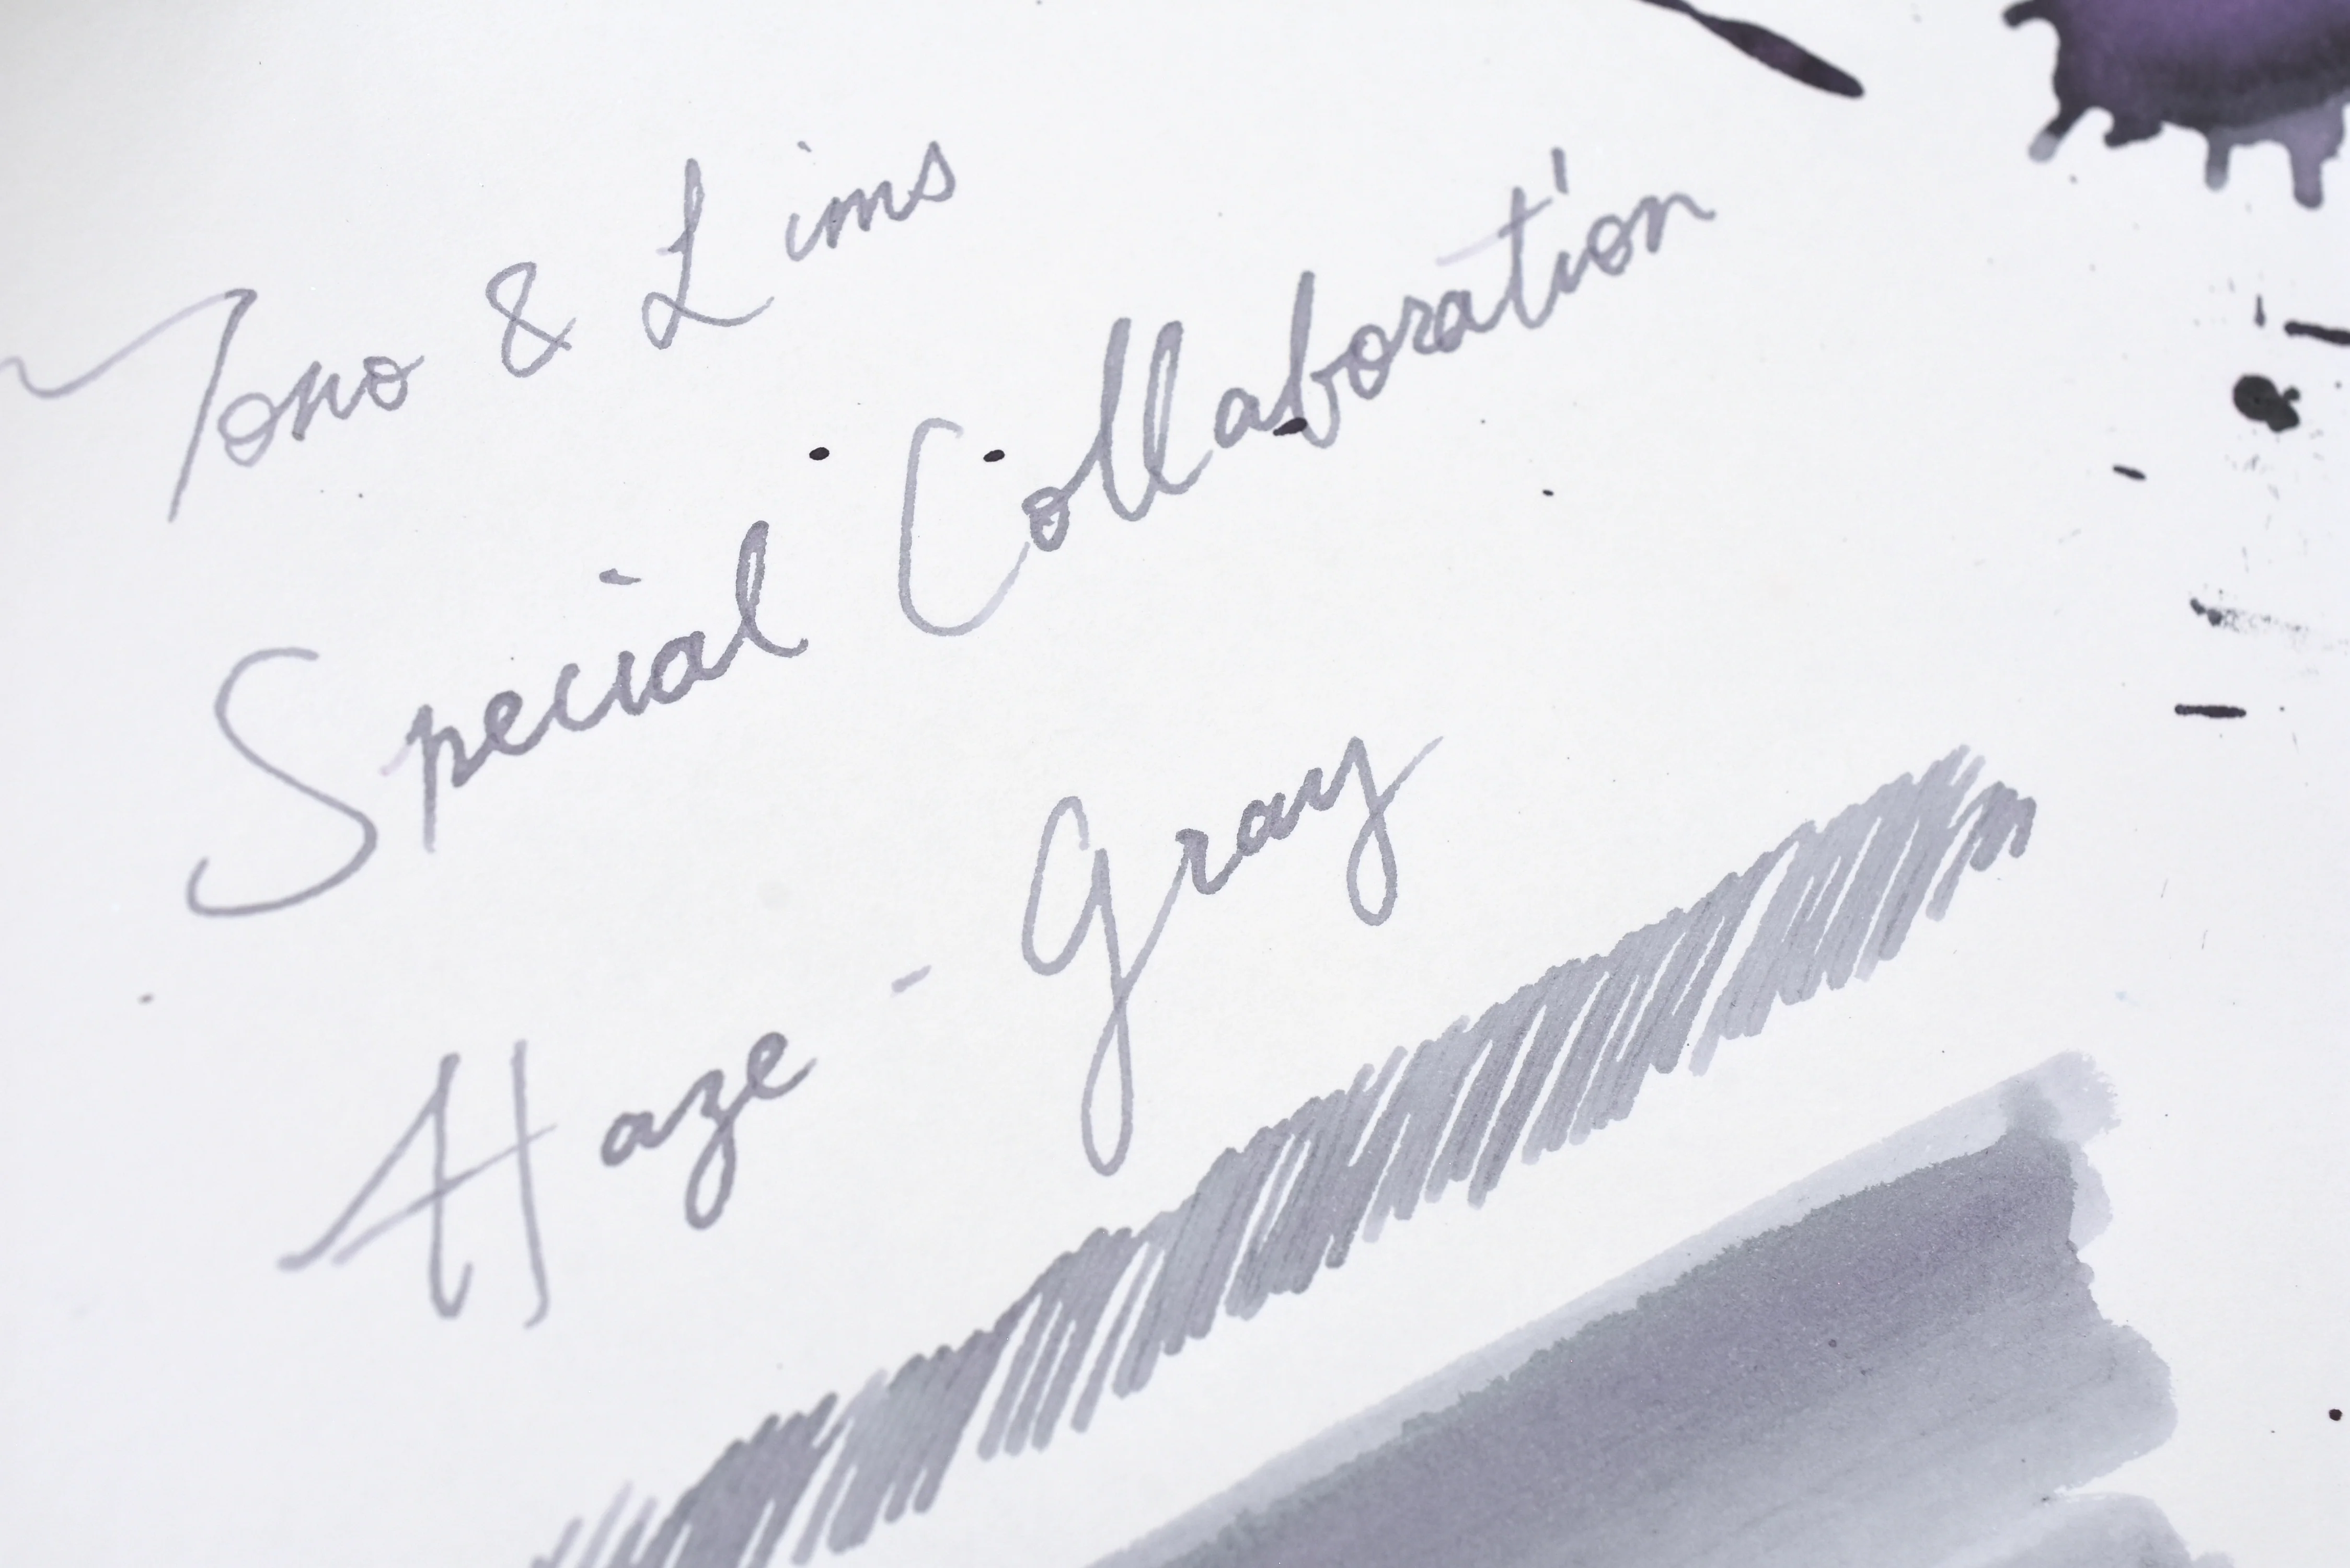 Tono & Lims
Special Collaboration
Haze - Gray